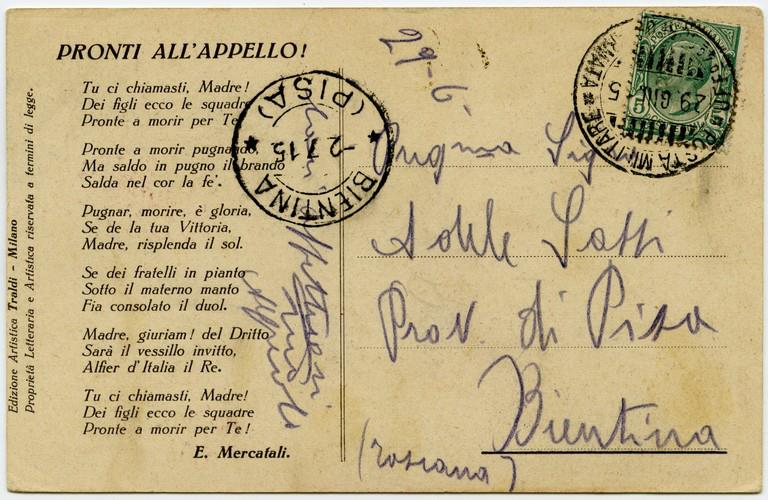 PRONTI ALL'APPELLO!
Tu ci chiamasti, Madre!
Dei figli ecco le squadre
Pronte a morir per Te
Pronte a morir pugnando,
Ma saldo in pugno il brando
Salda nel cor la fe'.
Pugnar, morire, è gloria,
Se de la tua Vittoria,
Madre, risplenda il sol.
Se dei fratelli in pianto
Sotto il materno manto
Fia consolato il duol.
Madre, giuriam! del Dritto
Sarà il vessillo invitto,
Alfier d'Italia il Re.
Tu ci chiamasti, Madre!
Dei figli ecco le squadre
Pronte a morir per Te!
E. Mercatali.
Edizione Artistica Traldi - Milano
Proprietà Letteraria e Artistica riservata a termini di legge.
BIENTINA
(PISA)
-2.7.15
29-6.
POSTA MILITARE
29 GIU 15
5
Adele
Prov. di Pisa
Bientina
(Toscana)